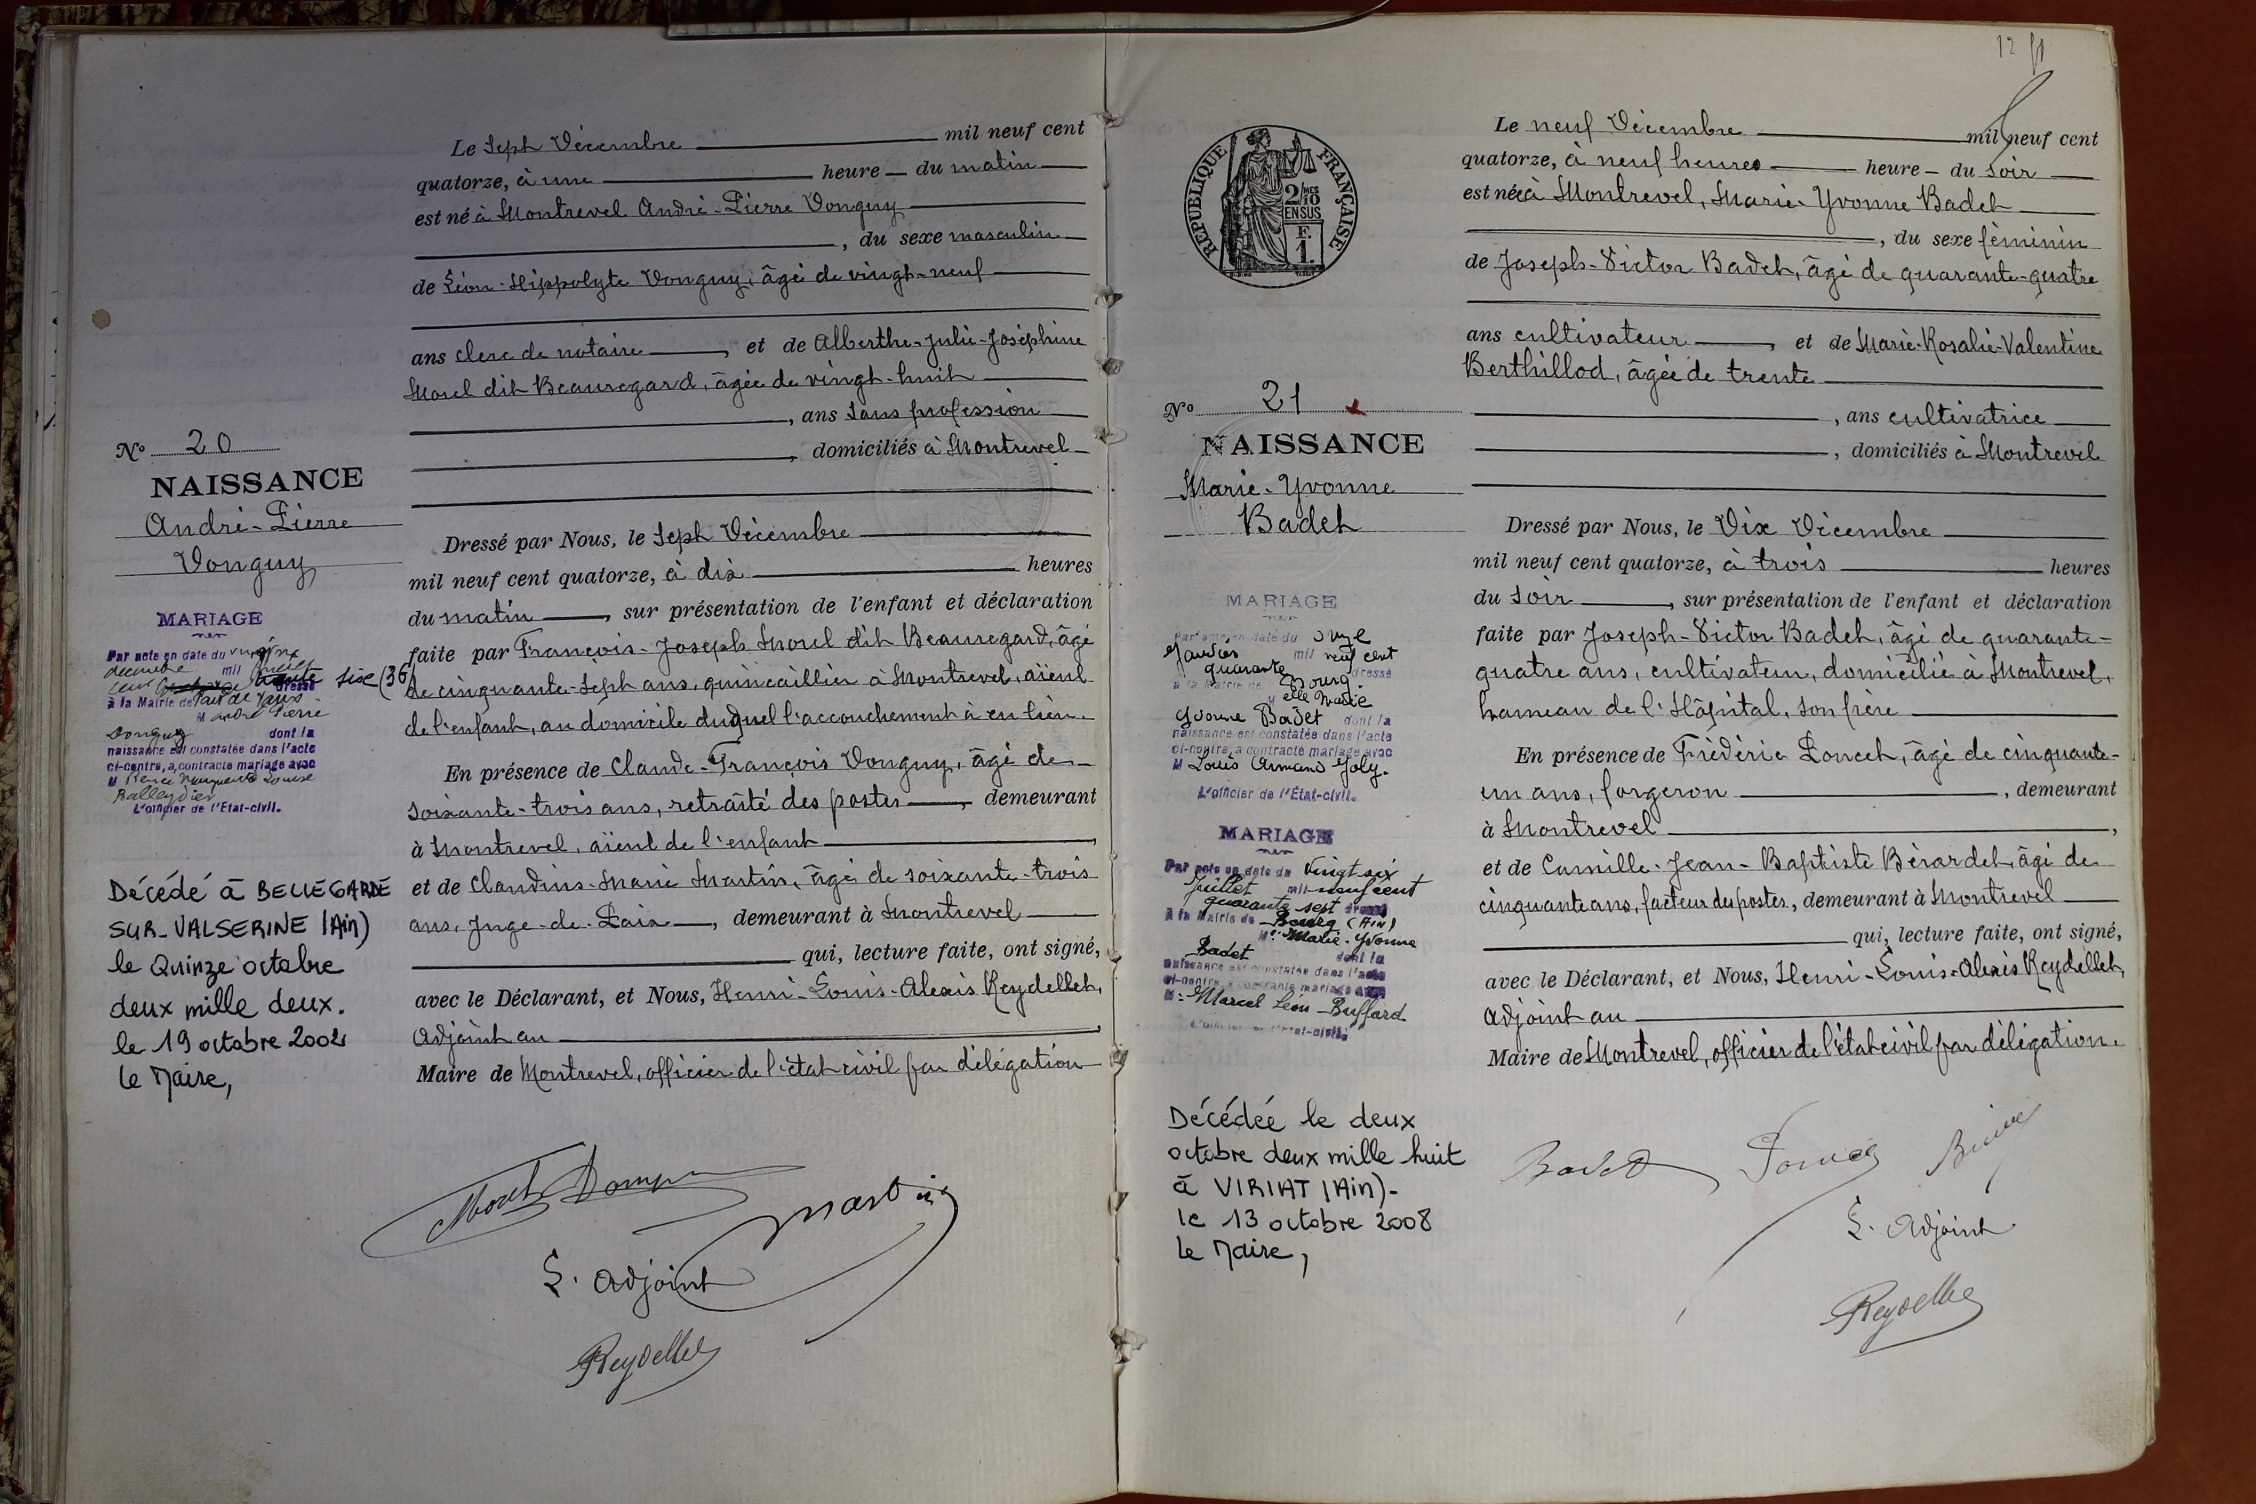 Le Sept Décembre mil neuf cent
quatorze, à une heure du matin
est né à Montrevel André-Pierre Donguy
, du sexe masculin
de Léon-Hippolyte Donguy, âgé de vingt-neuf
ans clerc de notaire, et de Alberthe-Julie-Joséphine
Morel dit Beauregard, âgée de vingt-huit
, ans sans profession
, domiciliés à Montrevel
Dressé par Nous, le Sept Décembre
mil neuf cent quatorze, à dix heures
du matin, sur présentation de l'enfant et déclaration
faite par François-Joseph Morel dit Beauregard, âgé
de cinquante-sept ans, quincaillier à Montrevel, aïeul
de l'enfant, au domicile duquel l'accouchement à eu lieu.
En présence de Claude-François Donguy, âgé de
soixante-trois ans, retraité des postes, demeurant
à Montrevel, aïeul de l'enfant
et de Claudius-Marie Martin, âgé de soixante-trois
ans, Juge-de-Paix, demeurant à Montrevel
qui, lecture faite, ont signé,
avec le Déclarant, et Nous, Henri-Louis-Alexis Reydellet,
Adjoint au
Maire de Montrevel, officier de l'état civil par délégation
Morel Donguy Martin
L. Adjoint
Reydellet
No 20
NAISSANCE
André-Pierre
Donguy
MARIAGE
Par acte en date du
décembre mil
cent trente six (36) dressé
à la Mairie de
M André Pierre
Donguy dont la
naissance est constatée dans l'acte
ci-contre, a contracté mariage avec
M Renée Marguerite Louise
Balleydier
L'officier de l'État-civil.
Décédé à BELLEGARDE
SUR-VALSERINE (Ain)
le Quinze octobre
deux mille deux.
le 19 octobre 2002
Le Maire,
12
REPUBLIQUE FRANÇAISE
2/10 MES
EN SUS
F.
1.
No 21
NAISSANCE
Marie-Yvonne
Badet
MARIAGE
Par acte en date du onze
Janvier mil neuf cent
quarante dressé
à la Mairie de Bourg.
M elle Marie
Yvonne Badet dont la
naissance est constatée dans l'acte
ci-contre, a contracté mariage avec
M Louis Armand Joly.
L'officier de l'État-civil.
MARIAGE
Par acte en date du Vingt six
Juillet mil neuf cent
quarante sept dressé
à la Mairie de Bourg (Ain)
Marie-Yvonne
Badet dont la
naissance est constatée dans l'acte
ci-contre, a contracté mariage avec
M. Marcel Léon Buffard
L'officier de l'État-civil.
Décédée le deux
octobre deux mille huit
à VIRIAT (Ain)-
le 13 octobre 2008
Le Maire,
Le neuf Décembre mil neuf cent
quatorze, à neuf heures heure du soir
est née à Montrevel, Marie-Yvonne Badet
, du sexe féminin
de Joseph-Victor Badet, âgé de quarante-quatre
ans cultivateur, et de Marie-Rosalie-Valentine
Berthillod, âgée de trente
, ans cultivatrice
, domiciliés à Montrevel
Dressé par Nous, le Dix Décembre
mil neuf cent quatorze, à trois heures
du soir, sur présentation de l'enfant et déclaration
faite par Joseph-Victor Badet, âgé de quarante-
quatre ans, cultivateur, domicilié à Montrevel,
hameau de l'Hôpital, son père
En présence de Frédéric Poncet, âgé de cinquante-
un ans, forgeron, demeurant
à Montrevel,
et de Camille-Jean-Baptiste Bérardet, âgé de
cinquante ans, facteur des postes, demeurant à Montrevel
qui, lecture faite, ont signé,
avec le Déclarant, et Nous, Henri-Louis-Alexis Reydellet,
Adjoint au
Maire de Montrevel, officier de l'état civil par délégation.
Badet Poncet
L. Adjoint
Reydellet